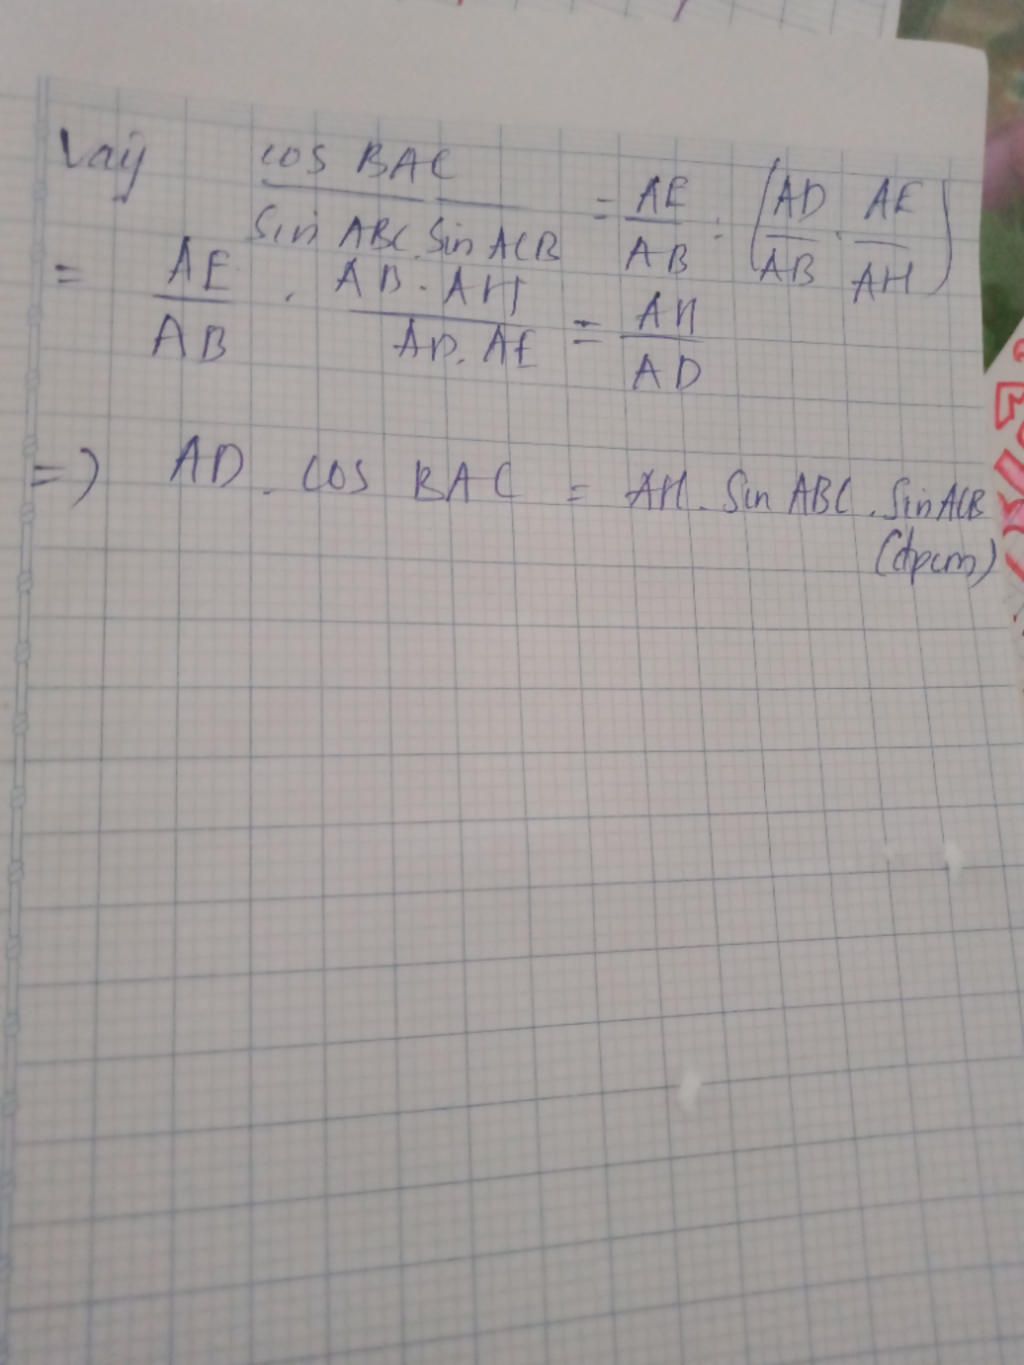 Vậy cos BAC / Sin ABC. Sin ACB = AE / AB : (AD / AB . AE / AH)
= AE / AB . AB. AH / AD. AE = AH / AD
=) AD. cos BAC = AH. Sin ABC. Sin ACB
(đpcm)